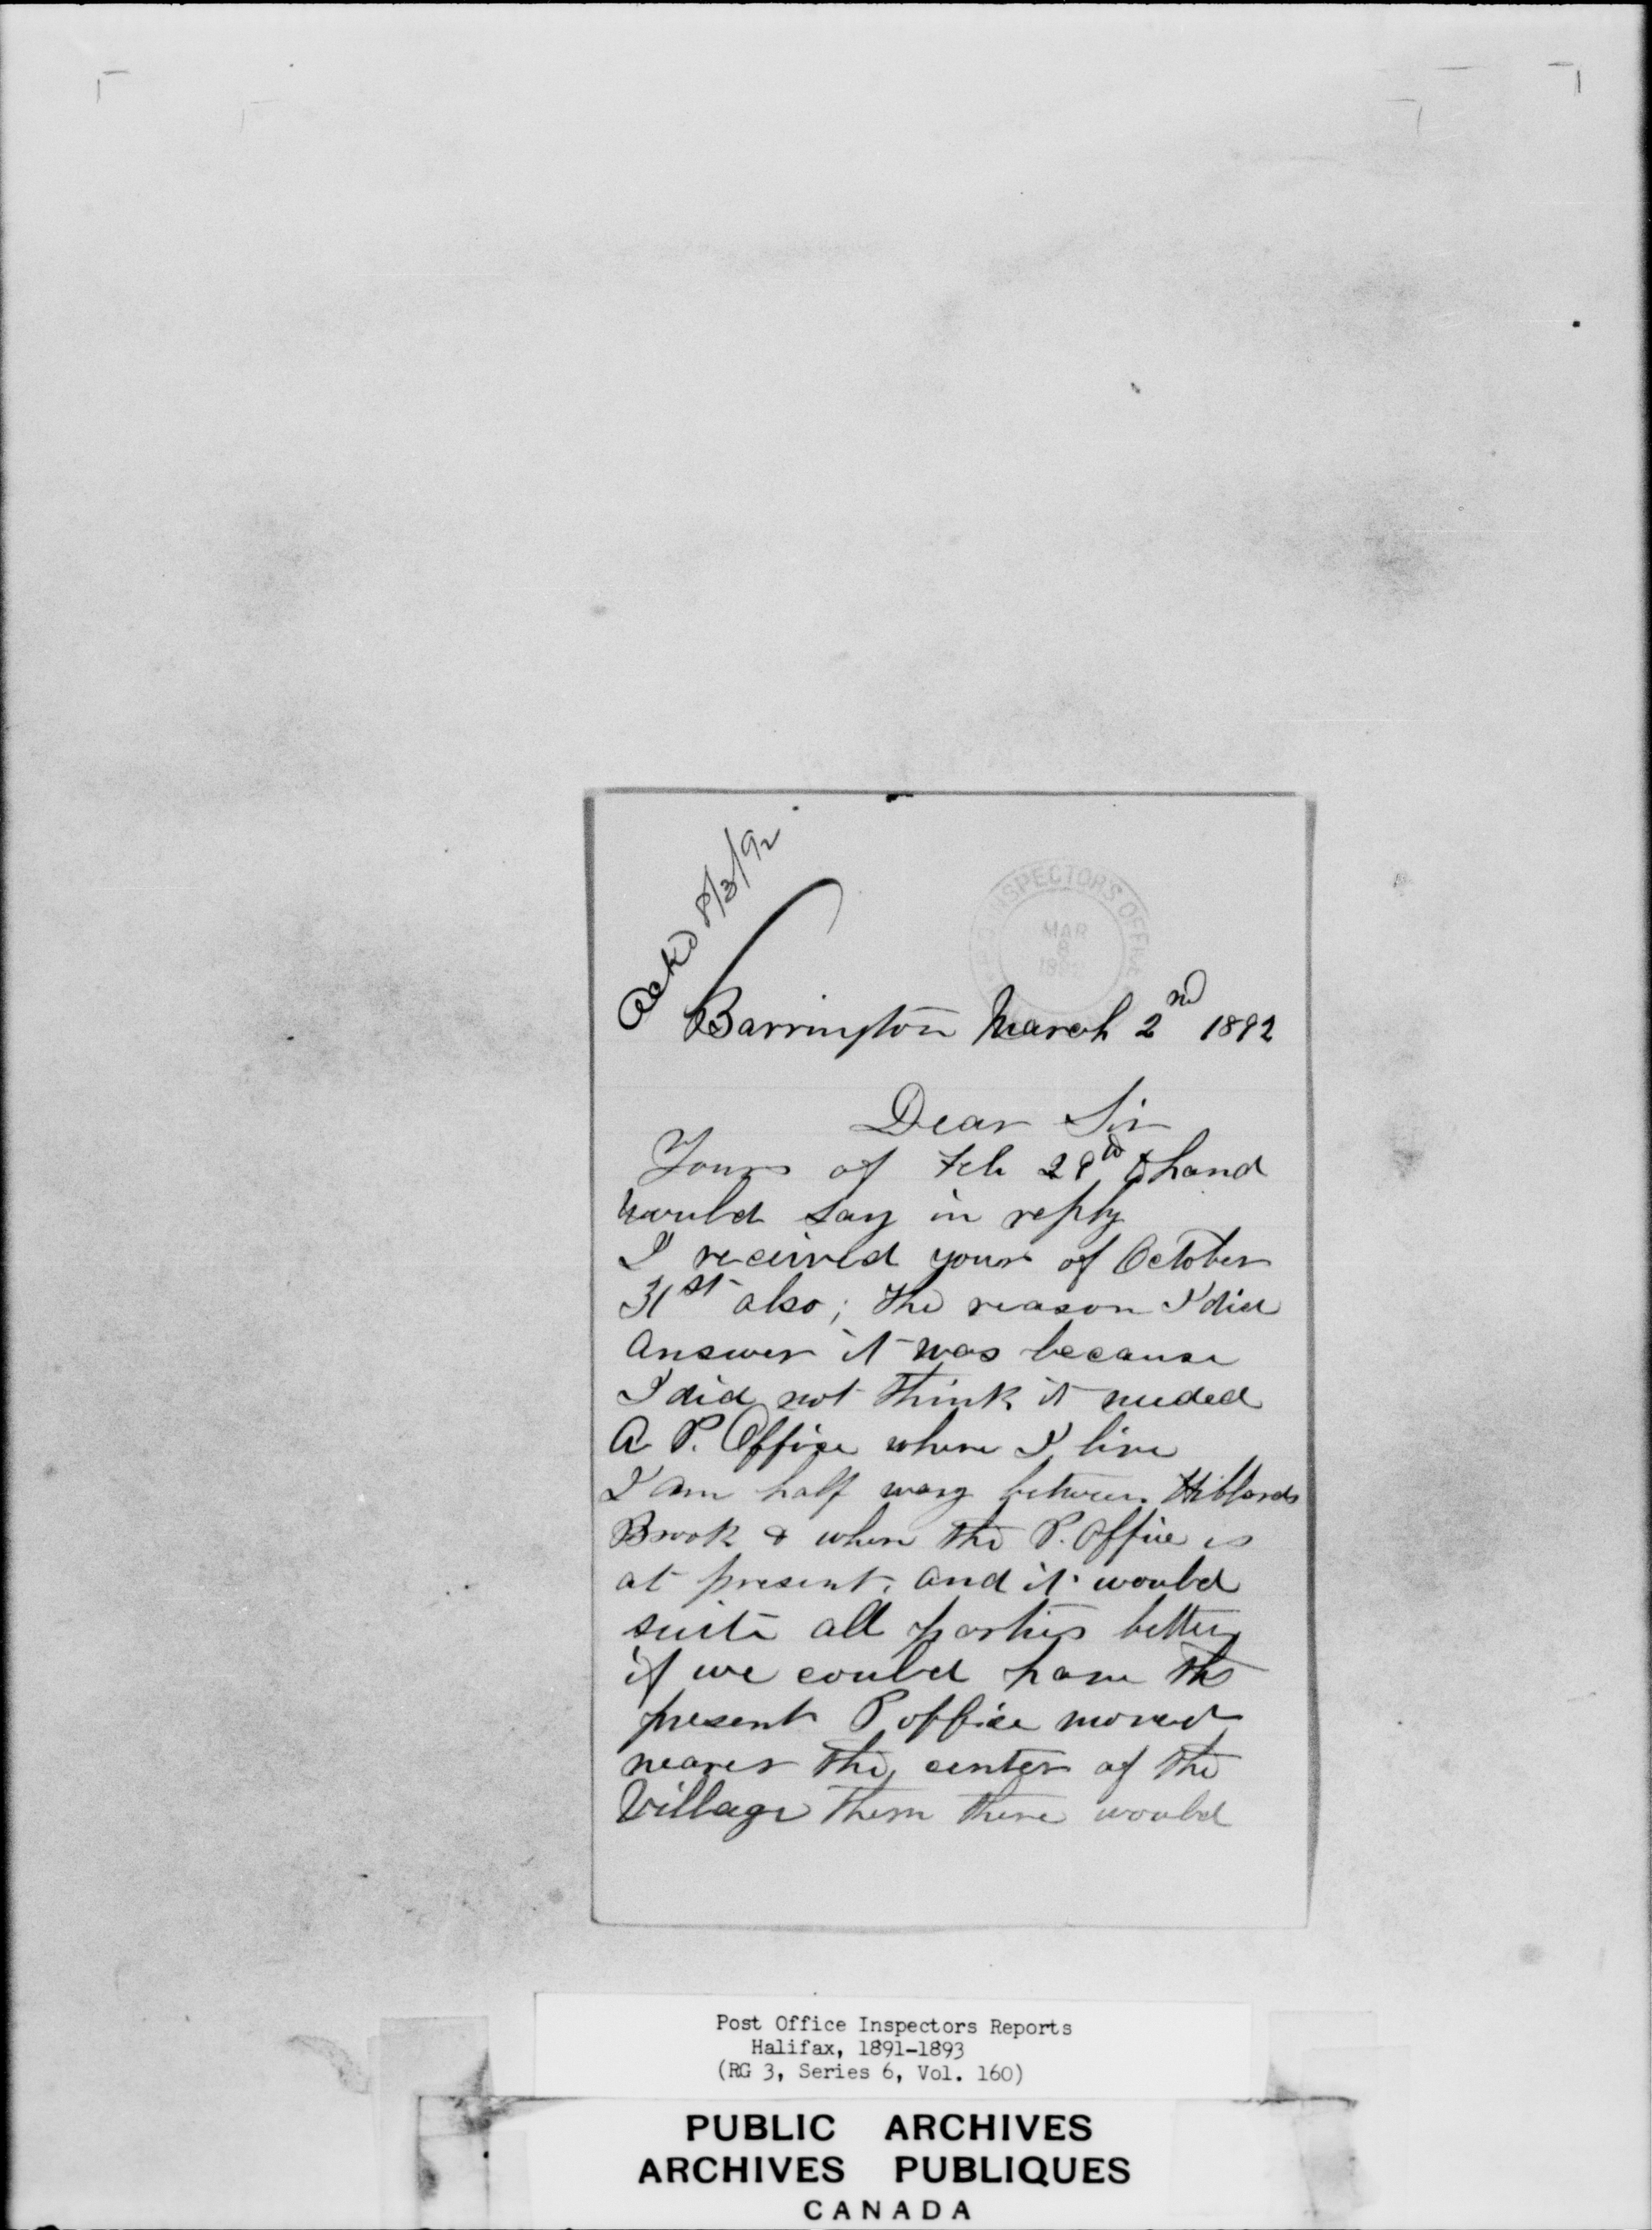 Ackd 8/3/92
P.O. INSPECTOR'S OFFICE
MAR
8
1892
Barrington March 2nd 1892
Dear Sir
Yours of Feb 29th hand
would say in reply
I received yours of October
31st also; the reason I did
answer it was because
I did not think it needed
A P. Office where I live
I am half way between Hibbards
Brook & where the P. Office is
at present, and it would
suite all parties better
if we could have the
present P office moved
nearer the center of the
Village Them there would
Post Office Inspectors Reports
Halifax, 1891-1893
(RG 3, Series 6, Vol. 160)
PUBLIC ARCHIVES
ARCHIVES PUBLIQUES
CANADA